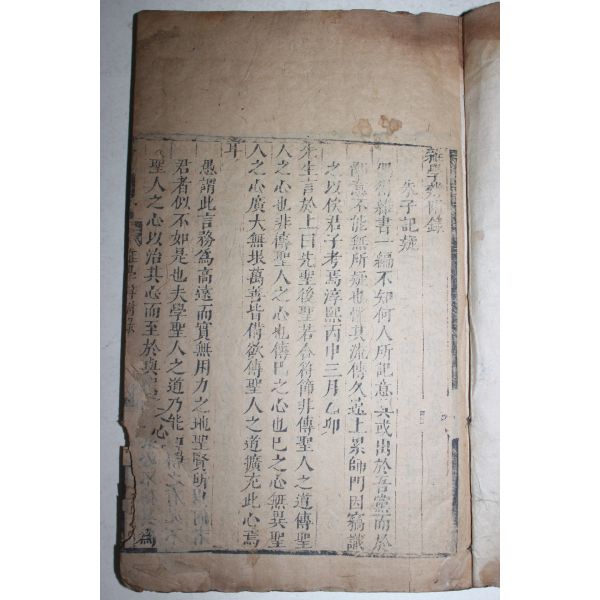 雜學辨附錄
朱子記疑
偶得雜書一編不知何人所記意其或出於吾黨而於
鄙意不能無所疑也懼其流傳久遠上累師門因竊識
之以俟君子考焉淳熙丙申三月乙卯
先生言於上曰先聖後聖若合符節非傳聖人之道傳聖
人之心也非傳聖人之心也傳己之心也己之心無異聖
人之心廣大無垠萬善皆備欲傳聖人之道擴充此心焉
耳
愚謂此言務爲高遠而實無用力之地聖賢
君者似不如是也夫學聖人之道乃能
聖人之心以治其心而至於與
雜學辨附錄